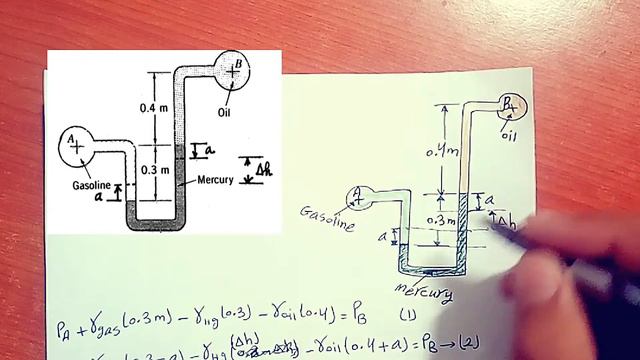 B
0.4 m
Oil
A
a
0.3 m
Δh
Gasoline
Mercury
a
B
oil
0.4m
A
a
Gasoline
0.3m
Δh
a
mercury
P_A + γ_gas (0.3m) - γ_Hg (0.3) - γ_oil (0.4) = P_B (1)
(0.3-a) - γ_Hg (Δh) - γ_oil (0.4 + a) = P_B → (2)